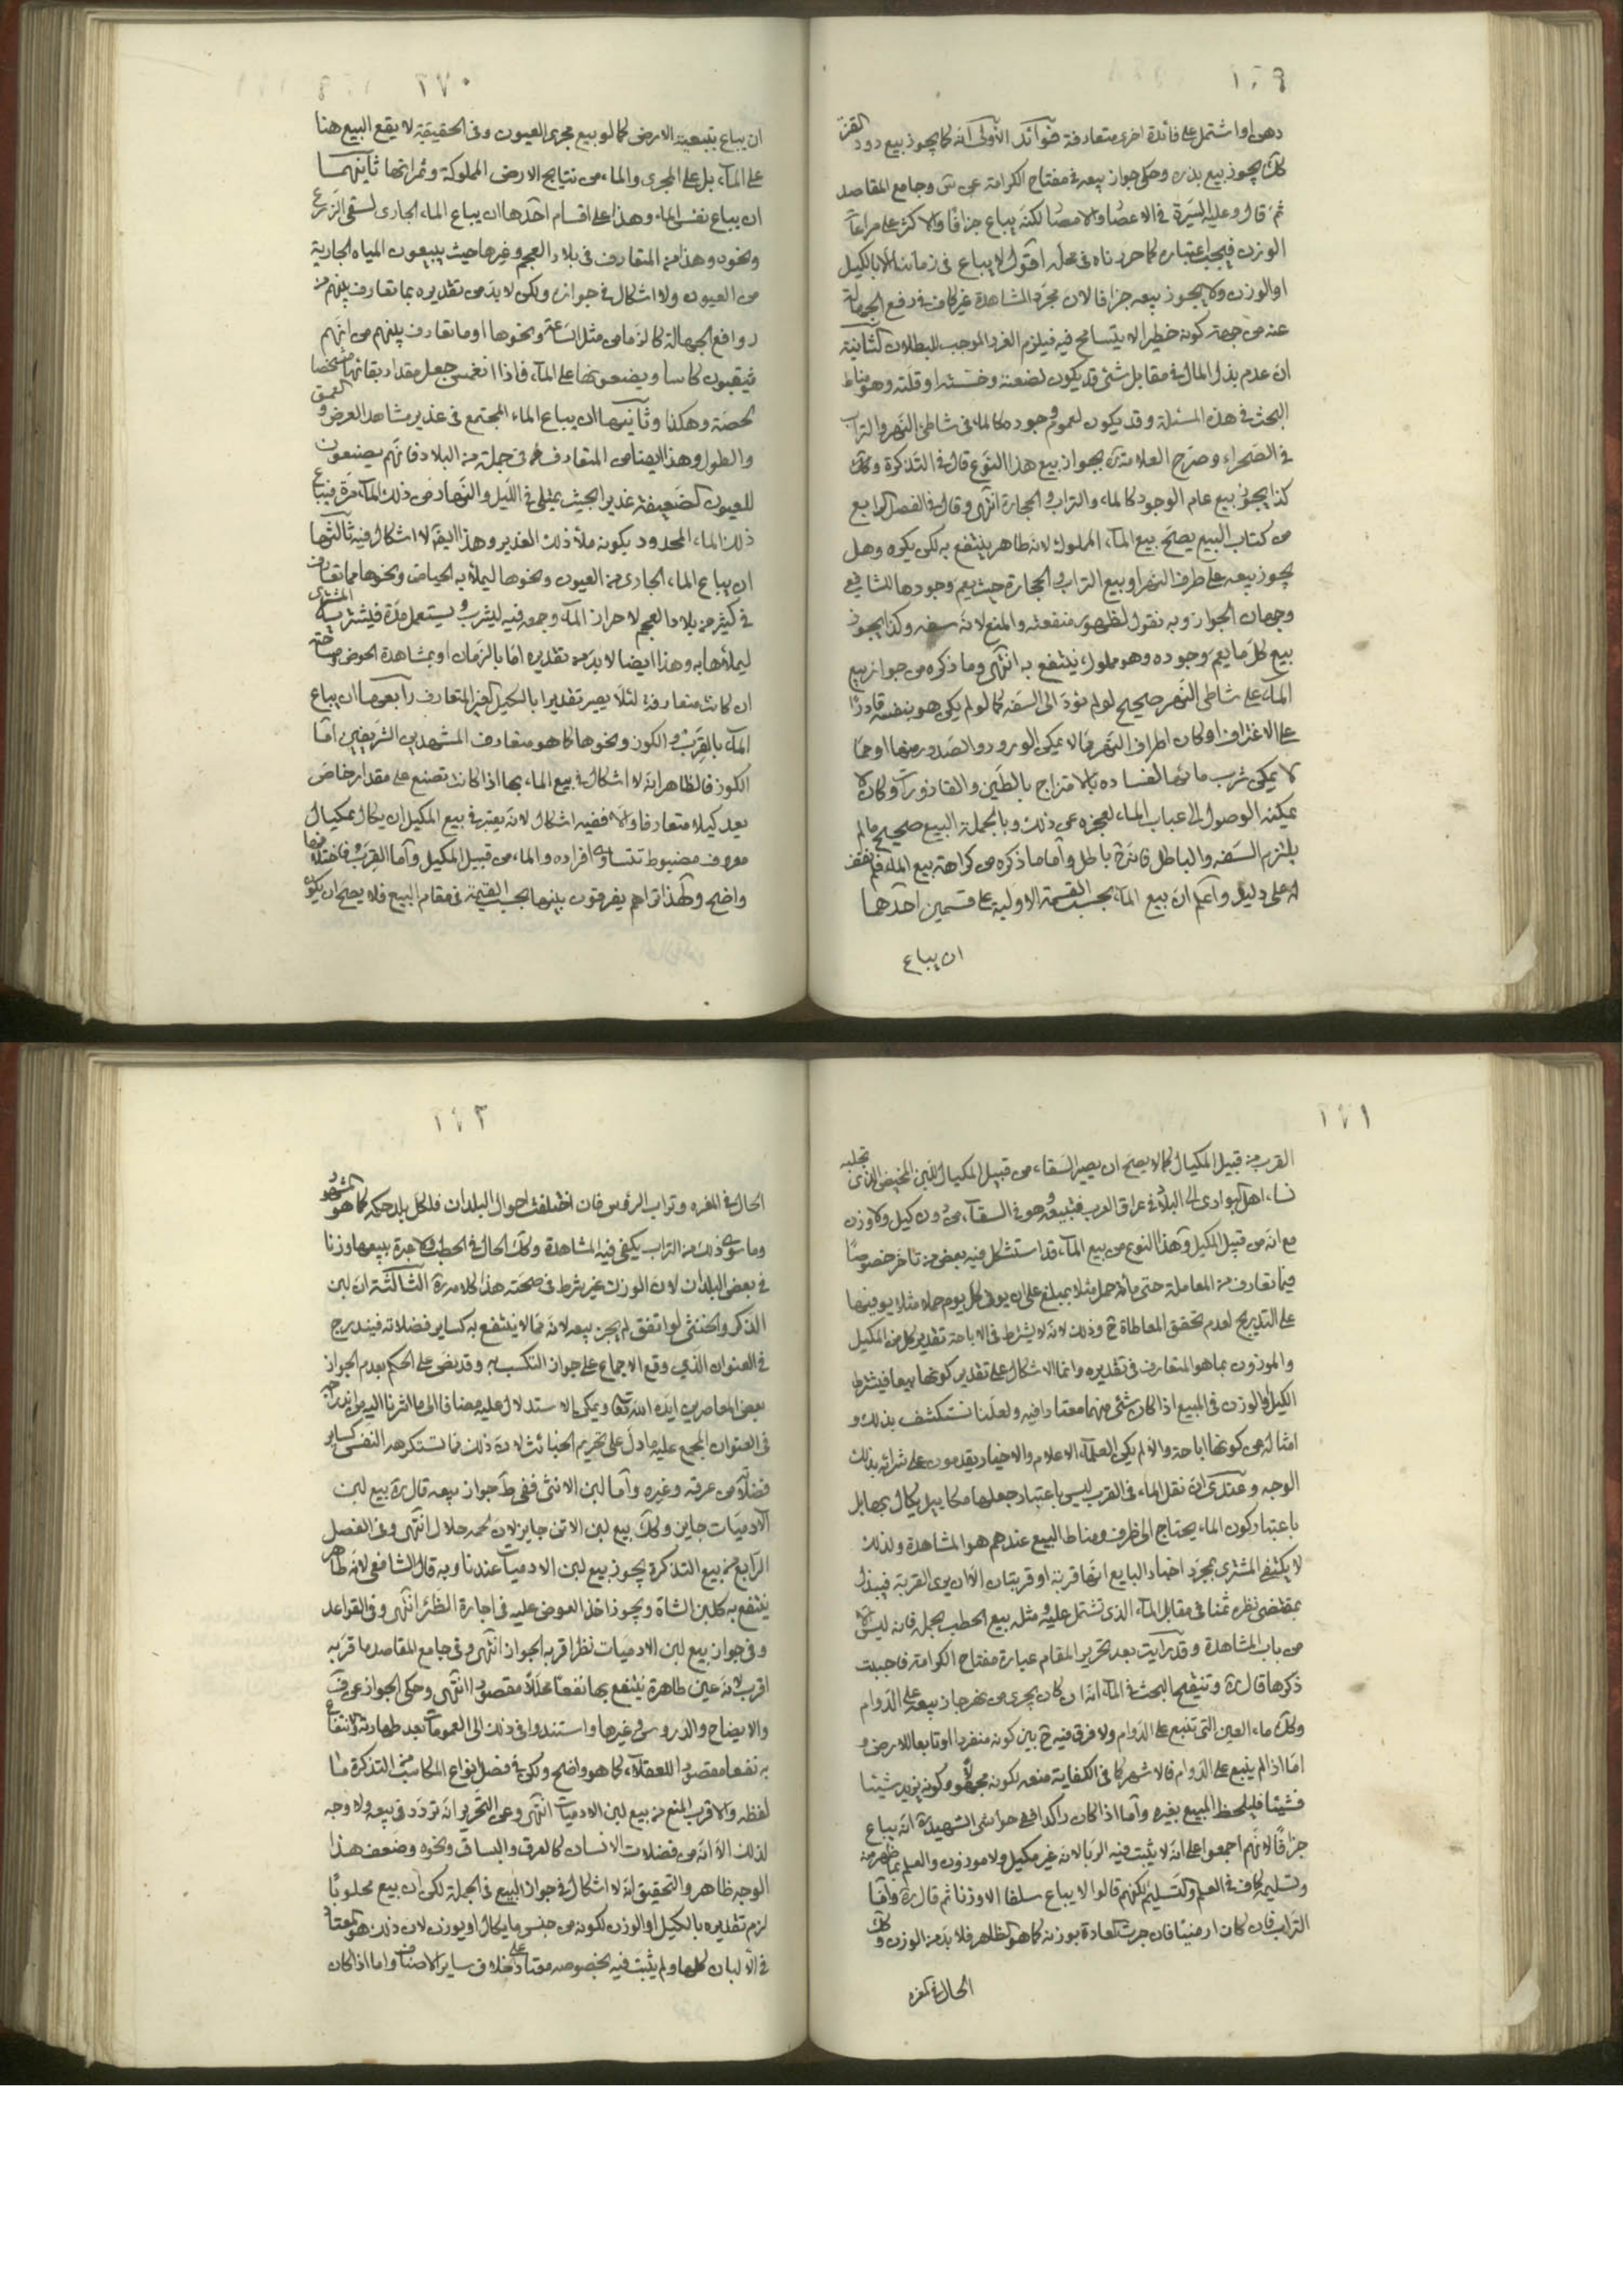 ١٦٩
دهى او اشتمل على فائدة اخرى متعارفة فوائد الأولى انه كما يجوز بيع دود القز
كك يجوز بيع بذره وحكى جواز بيعه فى مفتاح الكرامة عن وجامع المقاصد
ثم قال وعليه السيرة فى الاعصار والامصار لكنه يباع جزافا والاكثر على مراعاة
الوزن فيجب اعتباره كما حررناه فى محله اقول لا يباع فى زماننا الا بالكيل
او الوزن ولا يجوز بيعه جزافا لان مجرد المشاهدة غير كاف فى دفع الجهالة
عنه من جهة كونه خطيرا لا يتسامح فيه فيلزم الغرر الموجب للبطلان الثانية
ان عدم بذل المال فى مقابل شئ قد يكون لضعته وخسته او قلته وهو مناط
البحث فى هذه المسئلة وقد يكون لعموم وجوده كالماء فى شاطئ النهر والتراب
فى الصحراء وصرح العلامة بجواز بيع هذا النوع قال فى التذكرة وكك
كذا يجوز بيع عام الوجود كالماء والتراب والحجارة انتهى وقال فى الفصل الرابع
من كتاب البيع يصح بيع الماء المملوك لانه طاهر ينتفع به لكن يكره وهل
يجوز بيعه على طرف النهر او بيع التراب والحجارة حيث يعم وجودها للشافعى
وجهان الجواز وبه نقول لظهور منفعته والمنع لانه سفه وكذا يجوز
بيع كل ما يعم وجوده وهو مملوك ينتفع به انتهى وما ذكره من جواز بيع
الماء على شاطى النهر صحيح لو لم يؤد الى السفه كما لو لم يكن هو بنفسه قادرا
على الاغتراف او كان اطراف النهر مما لا يمكن الورود والصدور منها او مما
لا يمكن شرب مائها لفساده بالامتزاج بالطين والقاذورات وكان لا
يمكنه الوصول الى عباب الماء لعجزه عن ذلك وبالجملة البيع صحيح ما لم
يلتزم السفه والباطل فانه ح باطل واما ما ذكره من كراهة بيع الماء فلم نقف
له على دليل واعلم ان بيع الماء بحسب القسمة الاولية على قسمين احدهما
ان يباع
١٧٠
ان يباع بتبعية الارض كما لو بيع مجرى العيون وفى الحقيقة لا يقع البيع هنا
على الماء بل على المجرى والماء من نتايج الارض المملوكة وثمراتها ثانيهما
ان يباع نفس الماء وهذا على اقسام احدها ان يباع الماء الجارى لسقى الزرع
ونحوه وهذا من المتعارف فى بلاد العجم وغيرها حيث يبيعون المياه الجارية
من العيون ولا اشكال فى جوازه ولكن لا بد من تقديره بما تعارف بينهم من
روافع الجهالة كالزمان من مثل الساعة ونحوها او ما تعارف بينهم من انهم
يثقبون كاسا ويضعونها على الماء فاذا انغمس جعل مقدار بقائها مشخصا
لحصة وهكذا وثانيها ان يباع الماء المجتمع فى غدير مشاهد العرض والعمق
والطول وهذا ايضا من المتعارف فى جملة من البلاد فانهم يصنعون
للعيون الضعيفة غديرا بحيث يمتلى فى الليل والنهار من ذلك الماء مرة فيباع
ذلك الماء المحدود بكونه ملأ ذلك الغدير وهذا ايضا لا اشكال فيه ثالثها
ان يباع الماء الجارى من العيون ونحوها ليملأ به الحياض ونحوها مما تعارف
فى كثير من بلاد العجم لاحراز الماء وجمعه فيه ليشرب ويستعمل مدة فيشتريه المشترى
ليملأها به وهذا ايضا لا بد من تقديره اما بالزمان او بمشاهدة الحوض ومساحته
ان كانت متعارفة لئلا يصير تقديرا بالكيل الغير المتعارف رابعها ان يباع
الماء بالقرب والكوز ونحوها كما هو متعارف المشهدين الشريفين اما
الكوز فالظاهر انه لا اشكال فى بيع الماء بها اذا كانت تصنع على مقدار خاص
يعد كيلا متعارفا والا ففيه اشكال لانه يعتبر فى بيع المكيل ان يكال بمكيال
معروف مضبوط تتساوى افراده والماء من قبيل المكيل واما القرب فاختلافها
واضح ولهذا تراهم يفرقون بينها بحسب القيمة فى مقام البيع فلا يصح ان يكون
١٧١
القرب من قبيل المكيال كما لا يصح ان يصير السقاء من قبيل المكيال للبن المخيض الذى تجلبه
نساء اهل البوادى الى البلاد فى عراق العرب فتبيعه وهو فى السقاء من دون كيل ولا وزن
مع انه من قبيل المكيل وهذا النوع من بيع الماء قد استشكل فيه بعض من تاخر خصوصا
فيما تعارف من المعاملة حتى مائة حمل مثلا بمبلغ على ان يوفى كل يوم حملا مثلا يوفيها
على التدريج لعدم تحقق المعاطاة ح وذلك لانه لا يشترط فى الاباحة تقدير كل من المكيل
والموزون بما هو المتعارف فى تقديره وانما الاشكال على تقدير كونها بيعا فيشترط
الكيل او الوزن فى المبيع اذا كان شئ منهما معتادا فيه ولعلنا نستكشف بذلك و
امثاله عن كونها اباحة والا لم يكن العلماء الاعلام والاخيار يقدمون على شرائه بذلك
الوجه وعندى ان نقل الماء فى القرب ليس باعتبار جعلها مكاييل يكال بها بل
باعتبار كون الماء يحتاج الى ظرف ومناط البيع عندهم هو المشاهدة ولذلك
لا يكتفى المشترى بمجرد اخبار البايع انها قربة او قربتان الا ان يرى القربة فيبذل
بمقتضى نظره ثمنا فى مقابل الماء الذى تشتمل عليه ومثله بيع الحطب بحمله فانه ليس الا
من باب المشاهدة وقد رايت بعد تحرير المقام عبارة مفتاح الكرامة فاحببت
ذكرها قال ره وتنقيح البحث فى الماء انه ان كان يجرى من نهر جاز بيعه على الدوام
وكك ماء العين التى تنبع على الدوام ولا فرق فيه ح بين كونه منفردا او تابعا للارض و
اما اذا لم ينبع على الدوام فالاشهر كما فى الكفاية منعه لكونه مجهولا وكونه يزيد شيئا
فشيئا فيلحظ المبيع بغيره واما اذا كان راكدا ففى حواشى الشهيد ره انه يباع
جزافا لانهم اجمعوا على انه لا يثبت فيه الربا لانه غير مكيل ولا موزون والعلم بما ظهر منه
وتسليمه كاف فى العلم والتسليم لكنهم قالوا لا يباع سلفا الا وزنا ثم قال ره واما
التراب فان كان ارمنيا فان جرت العادة بوزنه كما هو الظاهر فلا بد من الوزن وكك
الحال فى المغره
١٧٢
الحال فى المغره وتراب الرؤس فان اختلفت احوال البلدان فلكل بلد حكمه كما هو المشهور
وما سوى ذلك من التراب يكفى فيه المشاهدة وكك الحال فى الحطب ولا عبرة ببيعها وزنا
فى بعض البلدان لان الوزن غير شرط فى صحته هذا كلامه ره الثالثة ان لبن
الذكر والخنثى لو اتفق لم يجز بيعه لانه مما لا ينتفع به كساير فضلاته فيندرج
فى العنوان الذى وقع الاجماع على جواز التكسب به وقد نص على الحكم بعدم الجواز
بعض المعاصرين ايده الله تعالى ويمكن الاستدلال عليه مضافا الى ما اشرنا اليه من اندراجه
فى العنوان المجمع عليه ما دل على تحريم الخبائث لان ذلك مما تستكرهه النفس كساير
فضلاته من عرقه وغيره واما لبن الانثى ففى ط جواز بيعه قال ره بيع لبن
الآدميات جايز وكك بيع لبن الاتن جايز لان لحمه حلال انتهى وفى الفصل
الرابع من بيع التذكرة يجوز بيع لبن الادميات عندنا وبه قال الشافعى لانه طاهر
ينتفع به كلبن الشاة ويجوز اخذ العوض عليه فى اجارة الظئر انتهى وفى القواعد
وفى جواز بيع لبن الادميات نظر اقربه الجواز انتهى وفى جامع المقاصد ما قربه
اقرب لانه عين طاهرة ينتفع بها نفعا محللا مقصودا انتهى وحكى الجواز عن ف
والايضاح والدروس وغيرها واستندوا فى ذلك الى العمومات بعد طهارته والانتفاع
به نفعا مقصودا للعقلاء كما هو واضح ولكن فى فصل انواع المكاسب من التذكرة ما
لفظه والاقرب المنع من بيع لبن الادميات انتهى وعن التحرير انه تردد فى بيعه ولا وجه
لذلك الا انه من فضلات الانسان كالعرق والبساق ونحوه وضعف هذا
الوجه ظاهر والتحقيق انه لا اشكال فى جواز البيع فى الجملة لكن ان بيع محلوبا
لزم تقديره بالكيل او الوزن لكونه من جنس ما يكال او يوزن لان ذلك هو المعتاد
فى الالبان كلها ولم يثبت فيه بخصوصه معتاد على خلاف ساير الاصناف واما اذا كان